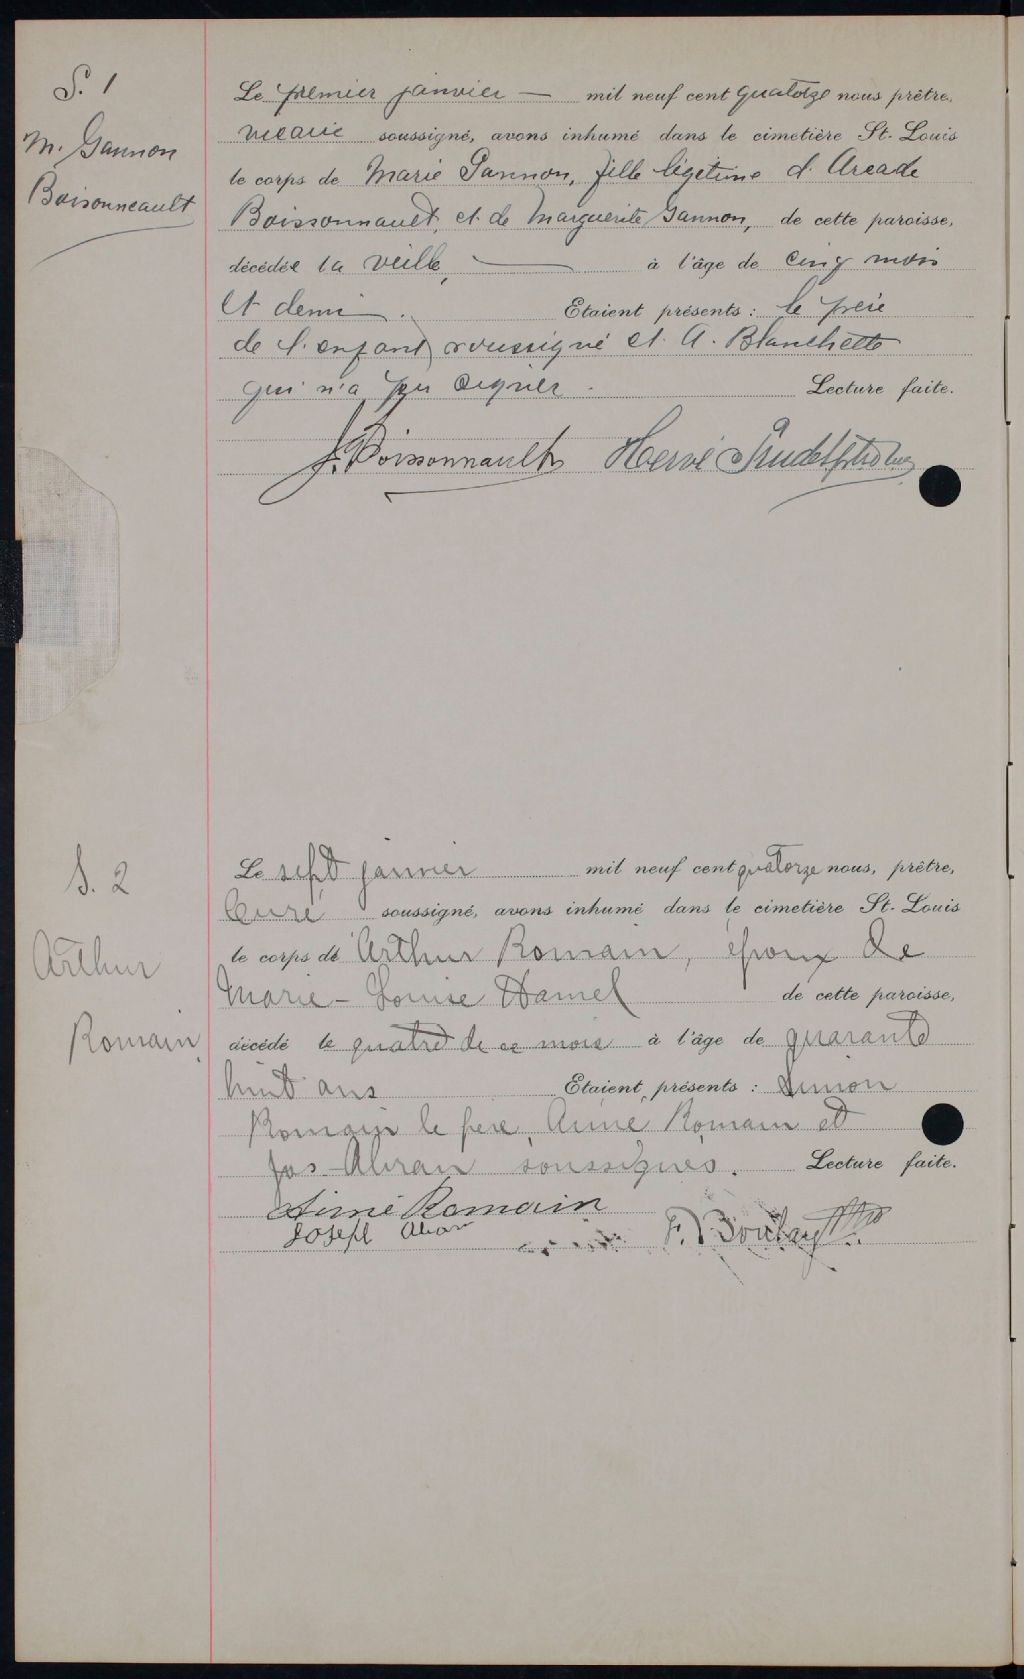 S. 1
M. Gannon
Boisonneault
Le premier janvier — mil neuf cent quatorze nous prêtre,
vicaire soussigné, avons inhumé dans le cimetière St-Louis
le corps de Marie Gannon, fille légitime d'Arcade
Boissonnault, et de Marguerite Gannon, de cette paroisse,
décédée la veille, — à l'âge de cinq mois
et demi. Etaient présents : le père
de l'enfant soussigné et A. Blanchette
qui n'a pu signer. Lecture faite.
J. Boissonnault Hervé
S. 2
Arthur
Romain
Le sept janvier mil neuf cent quatorze nous, prêtre,
Curé soussigné, avons inhumé dans le cimetière St-Louis
le corps de Arthur Romain, époux de
Marie-Louise Hamel de cette paroisse,
décédé le quatre de ce mois à l'âge de quarante
huit ans Etaient présents : Simon
Romain le père, Aimé Romain et
Jos soussignés. Lecture faite.
Aimé Romain
Joseph
F. Boulay